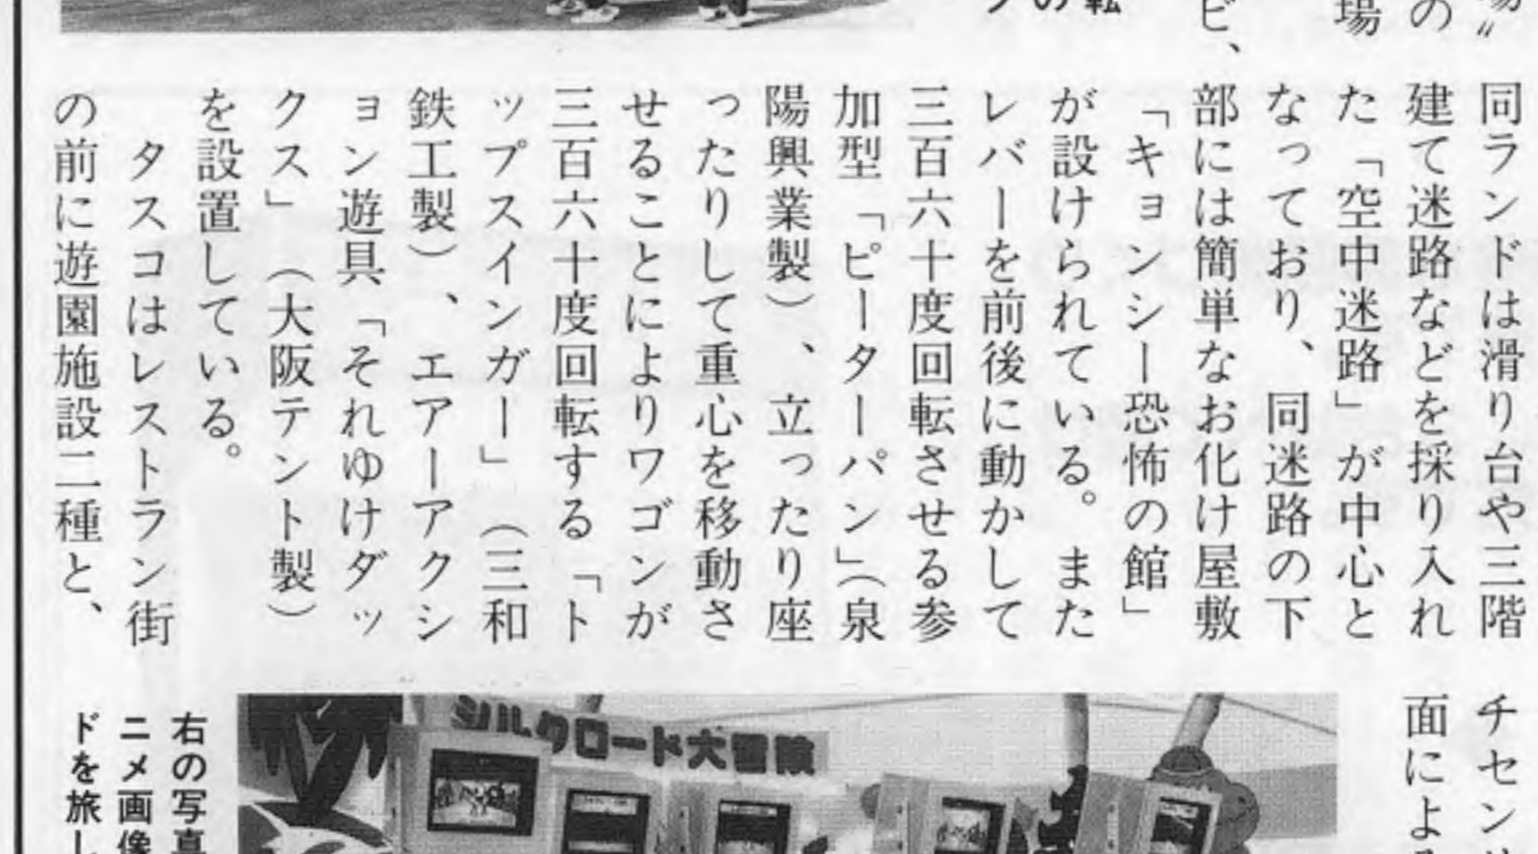 場〟
の
場
ビ、
転
の
同ランドは滑り台や三階
建て迷路などを採り入れ
た「空中迷路」が中心と
なっており、同迷路の下
部には簡単なお化け屋敷
「キョンシー恐怖の館」
が設けられている。また
レバーを前後に動かして
三百六十度回転させる参
加型「ピーターパン」（泉
陽興業製）、立ったり座
ったりして重心を移動さ
せることによりワゴンが
三百六十度回転する「ト
ップスインガー」（三和
鉄工製）、エアーアクシ
ョン遊具「それゆけダッ
クス」（大阪テント製）
を設置している。
タスコはレストラン街
の前に遊園施設二種と、
チセン
面によ
シルクロード大冒険
右の写真
ニメ画像
ドを旅し